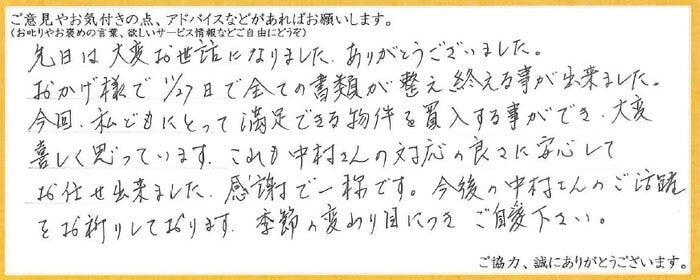 ご意見やお気付きの点、アドバイスなどがあればお願いします。
(お叱りやお褒めの言葉、欲しいサービス情報などご自由にどうぞ)
先日は大変お世話になりました。ありがとうございました。
おかげ様で 11/27日で全ての書類が整え終える事が出来ました。
今回、私どもにとって満足できる物件を買入する事ができ、大変
喜しく思っています。これも中村さんの対応の良さに安心して
お任せ出来ました。感謝で一杯です。今後の中村さんのご活躍
をお祈りしております。季節の変わり目につき ご自愛下さい。
ご協力、誠にありがとうございます。